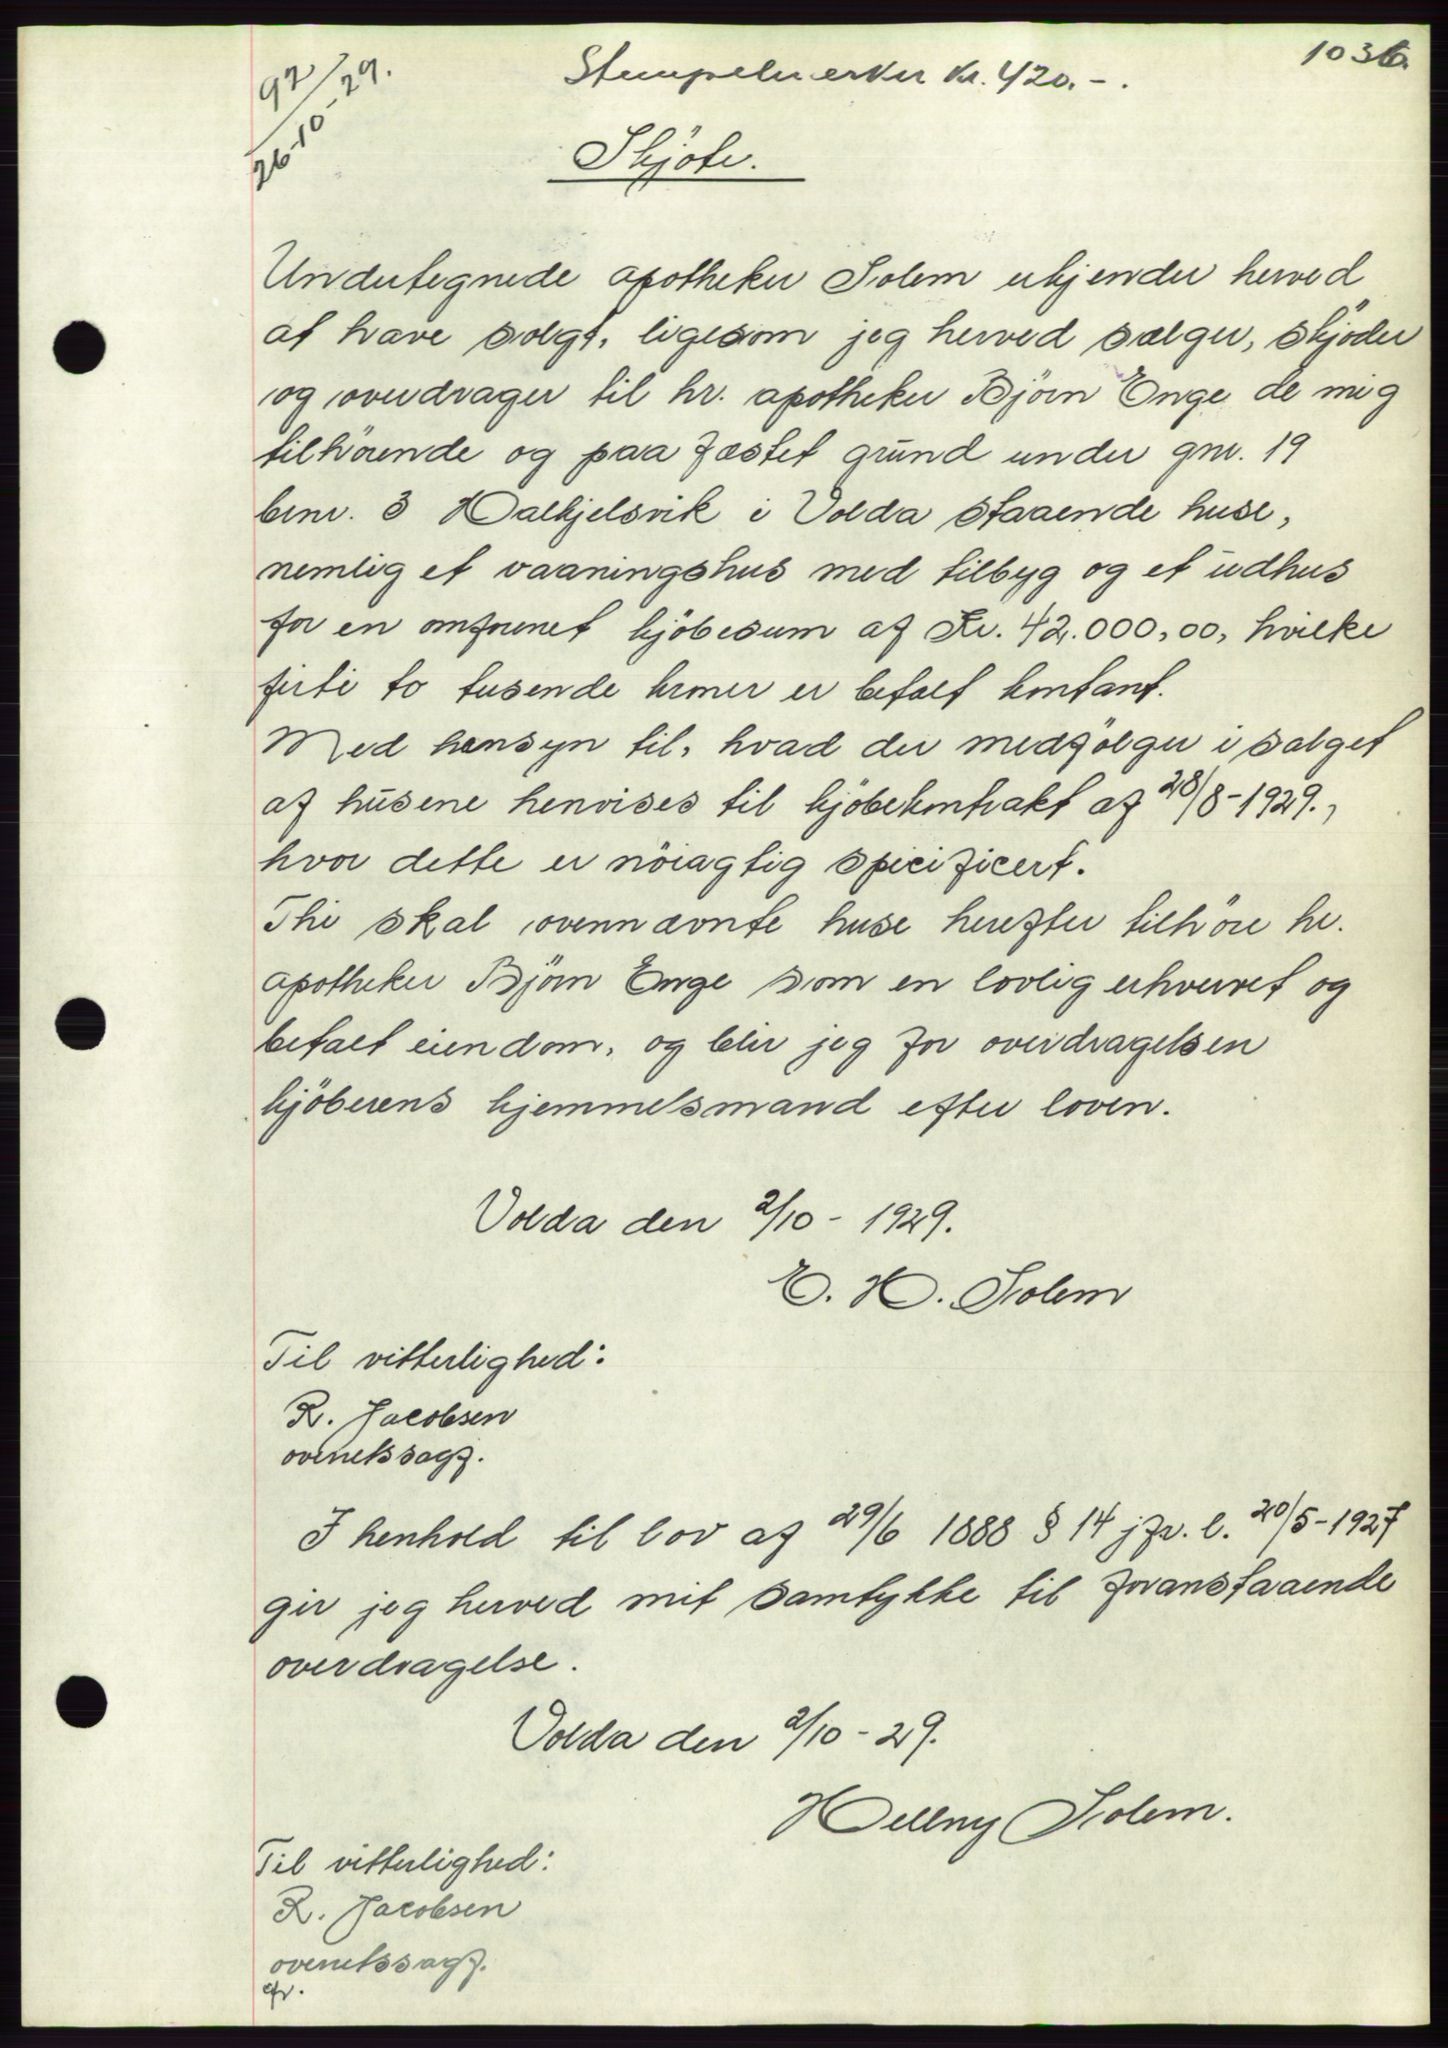 1036.
92/26-10-29.
Stempelmerker kr. 420.-.
Skjöte.
Undertegnede apotheker Solem erkjender herved
at have solgt, ligesom jeg herved sælger, skjöder
og overdrager til hr. apotheker Björn Enge de mig
tilhörende og paa fæstet grund under gnr. 19
bnr. 3 Halkjelsvik i Volda staaende huse,
nemlig et vaaningshus med tilbyg og et udhus
for en omforenet kjöbesum af Kr. 42.000,00, hvilke
firti to tusende kroner er betalt kontant.
Med hensyn til, hvad der medfölger i salget
af husene henvises til kjöbekontrakt af 28/8-1929.,
hvor dette er nöiagtig spicificert.
Thi skal ovennævnte huse herefter tilhöre hr.
apotheker Björn Enge som en lovlig erhvervet og
betalt eiendom, og blir jeg for overdragelsen
kjöberens hjemmelsmand efter loven.
Volda den 2/10-1929.
E. H. Solem
Til vitterlighed:
R. Jacobsen
overretssagf.
I henhold til lov af 29/6 1888 § 14 jfr. l. 20/5-1927
gir jeg herved mit samtykke til foranstaaende
overdragelse.
Volda den 2/10-29.
Hellny Solem.
Til vitterlighed:
R. Jacobsen
overretssagf.